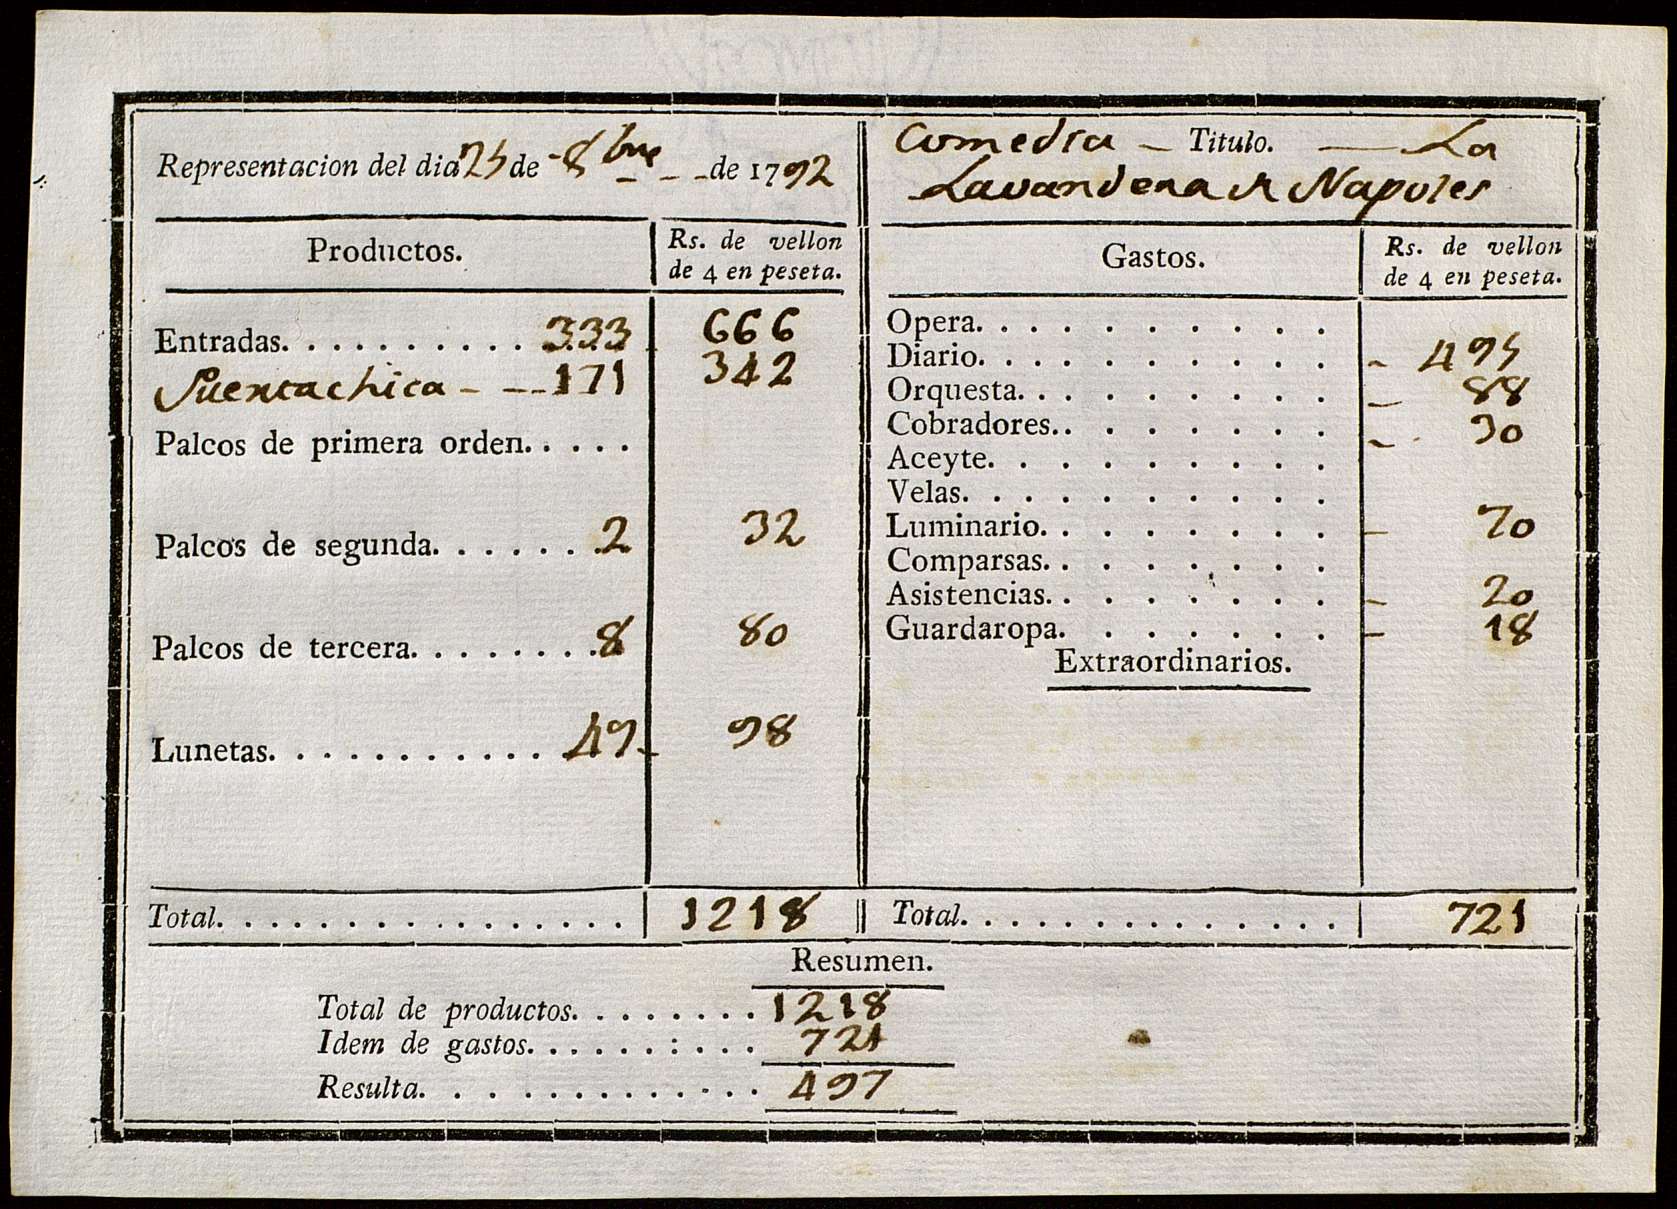 Representacion del dia 25 de 8bre de 1792
Comedia Titulo. La
Lavandera de Napoles
Productos.
Rs. de vellon
de 4 en peseta.
Entradas. 333 666
Puertachica 171 342
Palcos de primera orden.
Palcos de segunda. 2 32
Palcos de tercera. 8 80
Lunetas. 49 98
Total. 1218
Gastos.
Rs. de vellon
de 4 en peseta.
Opera.
Diario. 495
Orquesta. 88
Cobradores. 30
Aceyte.
Velas.
Luminario. 70
Comparsas.
Asistencias. 20
Guardaropa. 18
Extraordinarios.
Total. 721
Resumen.
Total de productos. 1218
Idem de gastos. 721
Resulta. 497